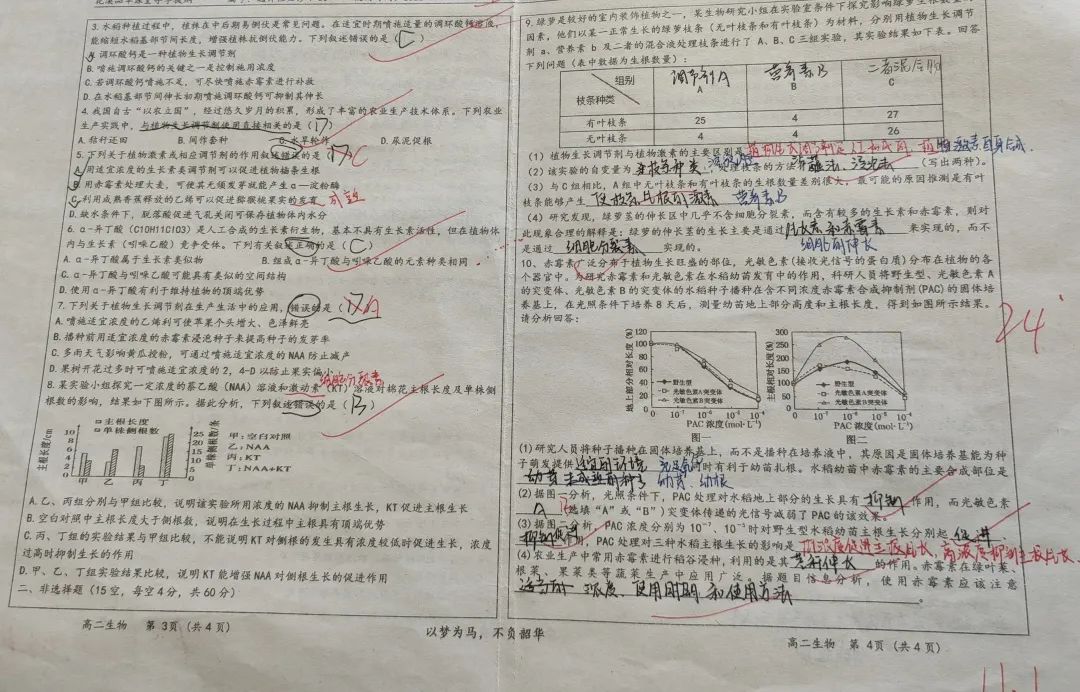 3.水稻种植过程中,植株在中后期易倒伏是常见问题。在适宜时期喷施适量的调环酸钙溶液,
能缩短水稻基部节间长度,增强植株抗倒伏能力。下列叙述错误的是( C )
A.调环酸钙是一种植物生长调节剂
B.喷施调环酸钙的关键之一是控制施用浓度
C.若调环酸钙喷施不足,可尽快喷施赤霉素进行补救
D.在水稻基部节间伸长初期喷施调环酸钙可抑制其伸长
4.我国自古“以农立国”,经过悠久岁月的积累,形成了丰富的农业生产技术体系。下列农业
生产实践中,与植物生长调节剂使用直接相关的是( D )
A.秸秆还田 B.间作套种 C.水旱轮作 D.尿泥促根
5.下列关于植物激素或相应调节剂的作用叙述错误的是( D C
A.用适宜浓度的生长素类调节剂可以促进植物插条生根
B.用赤霉素处理大麦,可使其无须发芽就能产生α-淀粉酶
C.利用成熟香蕉释放的乙烯可以促进猕猴桃果实的发育 成熟
D.缺水条件下,脱落酸促进气孔关闭可保存植物体内水分
6.α-异丁酸(C10H11ClO3)是人工合成的生长素衍生物,基本不具有生长素活性,但在植物体
内与生长素(吲哚乙酸)竞争受体。下列有关叙述正确的是( C )
A.α-异丁酸属于生长素类似物 B.组成α-异丁酸与吲哚乙酸的元素种类相同
C.α-异丁酸与吲哚乙酸可能具有类似的空间结构
D.使用α-异丁酸有利于维持植物的顶端优势
7.下列关于植物生长调节剂在生产生活中的应用,错误的是(
A.喷施适宜浓度的乙烯利可使苹果个头增大、色泽鲜亮
B.播种前用适宜浓度的赤霉素浸泡种子来提高种子的发芽率
C.多雨天气影响黄瓜授粉,可通过喷施适宜浓度的NAA防止减产
D.果树开花过多时可喷施适宜浓度的2,4-D以防止果实偏小
细胞分裂素
8.某实验小组探究一定浓度的萘乙酸(NAA)溶液和激动素(KT)溶液对棉花主根长度及单株侧
根数的影响,结果如下图所示。据此分析,下列叙述错误的是( B )
主根长度/cm
主根长度
单株侧根数
10
8
6
4
2
0
甲 乙 丙 丁
25
20
15
10
5
0
单株侧根数/条
甲:空白对照
乙:NAA
丙:KT
丁:NAA+KT
A.乙、丙组分别与甲组比较,说明该实验所用浓度的NAA抑制主根生长,KT促进主根生长
B.空白对照中主根长度大于侧根数,说明在生长过程中主根具有顶端优势
C.丙、丁组的结果与甲组比较,不能说明KT对侧根的发生具有浓度较低时促进生长,浓度
过高时抑制生长的作用
D.甲、乙、丁组实验结果比较,说明KT能增强NAA对侧根生长的促进作用
二、非选择题(15空,每空4分,共60分)
高二生物 第3页(共4页)
9.绿萝是较好的室内装饰植物之一,某生物研究小组在实验室条件下探究影响绿萝生根数量的
因素,他们以某一正常生长的绿萝枝条(无叶枝条和有叶枝条)为材料,分别用植物生长调节
剂a、营养素b及二者的混合液处理枝条进行了A、B、C三组实验,其实验结果如下表。回答
下列问题(表中数据为生根数量):
组别 调节剂A 营养素B 二者混合物
枝条种类 A B C
有叶枝条 25 4 27
无叶枝条 4 4 26
(1)植物生长调节剂与植物激素的主要区别是
(2)该实验的自变量为 枝条种类 ,处理枝条的方法 沾蘸法、浸泡法 (写出两种)。
(3)与C组相比,A组中无叶枝条和有叶枝条的生根数量差别很大,最可能的原因推测是有叶
枝条能产生 营养素B
(4)研究发现,绿萝茎的伸长区中几乎不含细胞分裂素,而含有较多的生长素和赤霉素,则对
此现象合理的解释是:绿萝的伸长茎的生长主要是通过 生长素和赤霉素 来实现的,而不
细胞的伸长
是通过 细胞分裂素 实现的。
10、赤霉素广泛分布于植物生长旺盛的部位,光敏色素(接收光信号的蛋白质)分布在植物的各
个器官中。为研究赤霉素和光敏色素在水稻幼苗发育中的作用,科研人员将野生型、光敏色素A
的突变体、光敏色素B的突变体的水稻种子播种在含不同浓度赤霉素合成抑制剂(PAC)的固体培
养基上,在光照条件下培养8天后,测量幼苗地上部分高度和主根长度,得到如图所示结果。
请分析回答:
24
地上部分相对长度(%)
120
100
80
60
40
20
0
野生型
光敏色素A突变体
光敏色素B突变体
0 10⁻⁷ 10⁻⁶ 10⁻⁵ 10⁻⁴
PAC浓度(mol·L⁻¹)
图一
主根相对长度(%)
300
250
200
150
100
50
0
野生型
光敏色素A突变体
光敏色素B突变体
0 10⁻⁷ 10⁻⁶ 10⁻⁵ 10⁻⁴
PAC浓度(mol·L⁻¹)
图二
(1)研究人员将种子播种在固体培养基上,而不是播种在培养液中,其原因是固体培养基能为种
子萌发提供 适宜的环境 充足氧气 同时有利于幼苗扎根。水稻幼苗中赤霉素的主要合成部位是
幼芽 未成熟的种子 幼芽、幼根
(2)据图一分析,光照条件下,PAC处理对水稻地上部分的生长具有 抑制 作用,而光敏色素
A (选填“A”或“B”)突变体传递的光信号减弱了PAC的该效果。
(3)据图二分析,PAC浓度分别为10⁻⁷、10⁻⁵时对野生型水稻幼苗主根生长分别起 促进
作用,PAC处理对三种水稻主根生长的影响是 低浓度促进主根生长,高浓度抑制主根生长
(4)农业生产中常用赤霉素进行稻谷浸种,利用的是其 茎秆伸长 的作用。赤霉素在绿叶菜、
根菜、果菜类等蔬菜生产中应用广泛。据题目信息分析,使用赤霉素应该注意
适宜的 浓度、使用时期 和使用方法 。
以梦为马,不负韶华
高二生物 第4页(共4页)